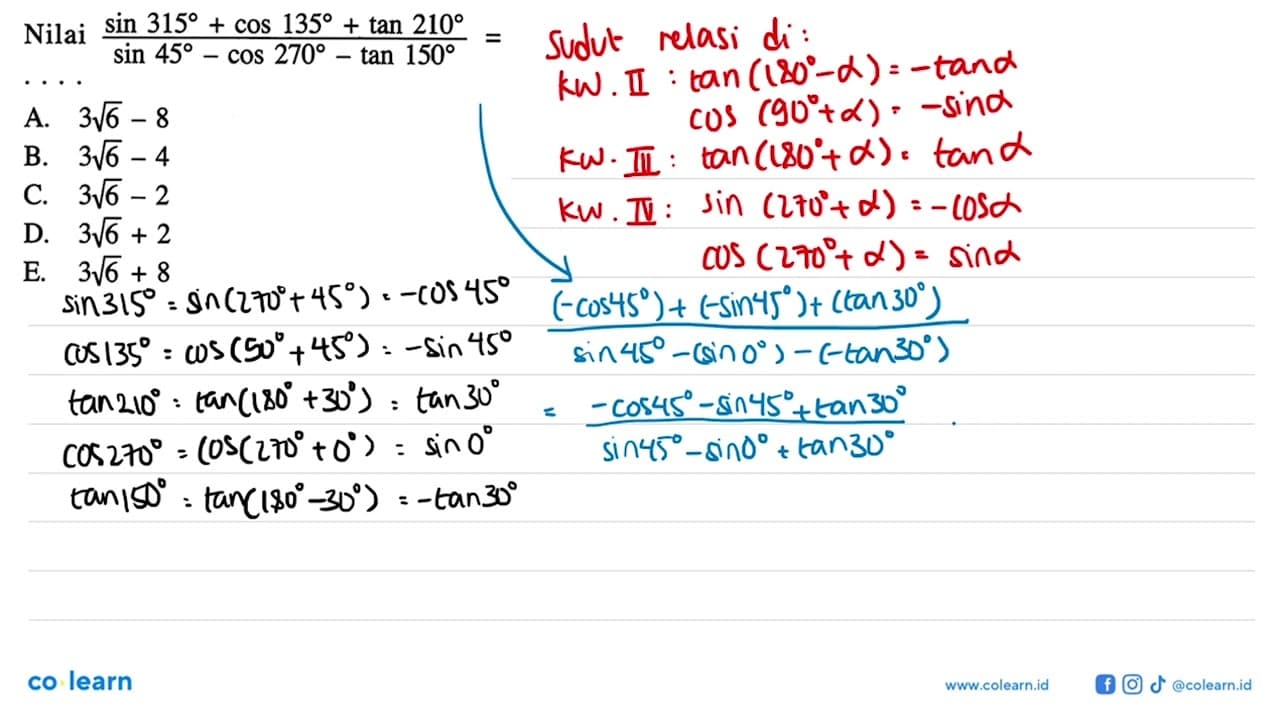 Nilai (sin 315° + cos 135° + tan 210°)/(sin 45° – cos 270° – tan 150°) =
. . . .
A. 3√6 – 8
B. 3√6 – 4
C. 3√6 – 2
D. 3√6 + 2
E. 3√6 + 8
Sudut relasi di :
KW. II : tan (180°-α) = -tan α
cos (90°+α) = -sin α
KW. III : tan (180°+α) = tan α
KW. IV : sin (270°+α) = -cos α
cos (270°+α) = sin α
sin 315° = sin (270°+45°) = -cos 45°
cos 135° = cos (50°+45°) = -sin 45°
tan 210° = tan (180°+30°) = tan 30°
cos 270° = cos (270°+0°) = sin 0°
tan 150° = tan (180°-30°) = -tan 30°
(-cos 45°) + (-sin 45°) + (tan 30°)
sin 45° - (sin 0°) - (-tan 30°)
= -cos 45° - sin 45° + tan 30°
sin 45° - sin 0° + tan 30°
co learn
www.colearn.id
@colearn.id